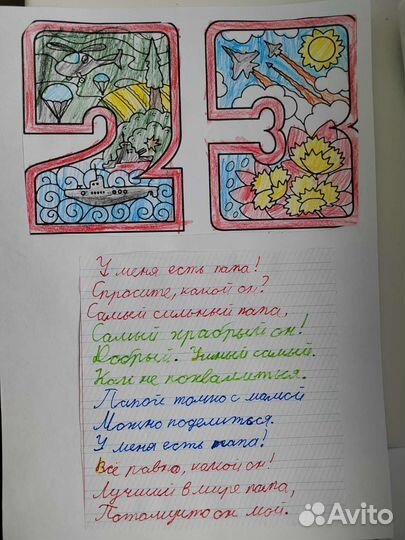 23
У меня есть папа!
Спросите, какой он?
Самый сильный папа,
Самый храбрый он!
Добрый. Умный самый.
Как не похвалиться.
Папой только с мамой
Можно поделиться.
У меня есть папа!
Всё равно, какой он!
Лучший в мире папа,
Потомучто он мой.
Avito